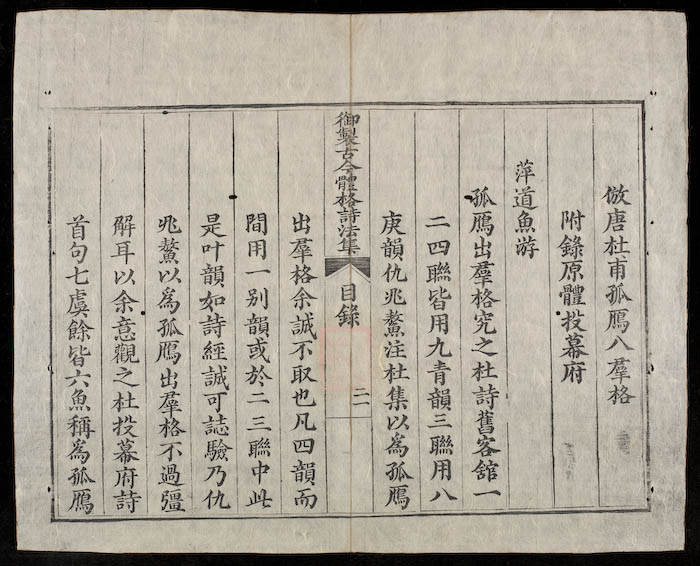 倣唐杜甫孤鴈入羣格
附錄原體投幕府
萍道魚游
孤鴈出羣格究之杜詩舊客舘一
二四聯皆用九青韻三聯用八
庚韻仇兆鰲注杜集以爲孤鴈
御製古今體格詩法集
目錄
二一
出羣格余誠不取也凡四韻而
間用一別韻或於二三聯中此
是叶韻如詩經誠可誌驗乃仇
兆鰲以爲孤鴈出羣格不過彊
解耳以余意觀之杜投幕府詩
首句七虞餘皆六魚稱爲孤鴈